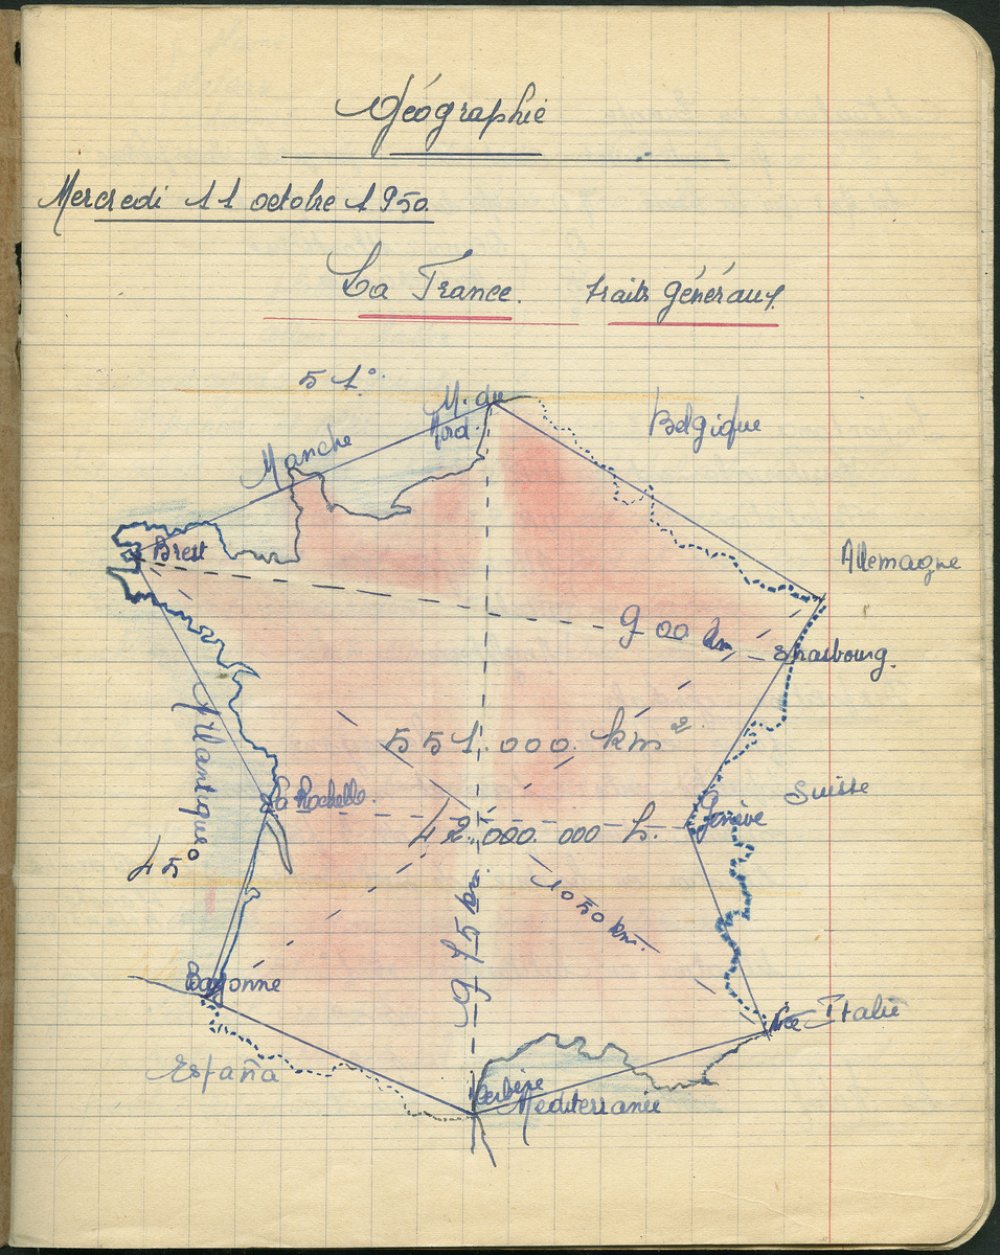 Géographie
Mercredi 11 octobre 1950.
La France. traits généraux.
51°
M. du
Nord
Manche
Belgique
Brest
Allemagne
900 km
Strasbourg.
Atlantique
551.000 km²
La Rochelle.
Suisse
42.000.000 h.
Genève
45°
1050 km.
975 km
Bayonne
Nice Italie
España
Cerbère
Méditerranée